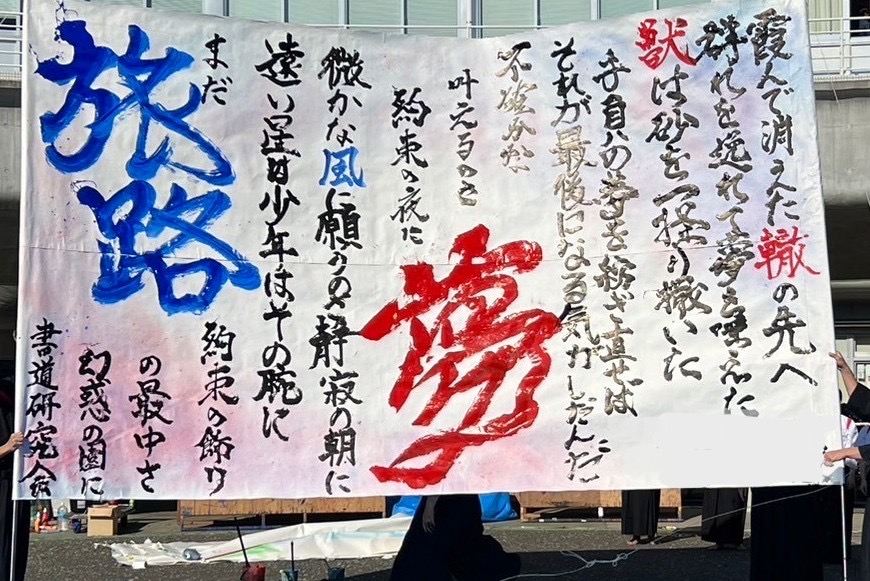 霞んで消えた轍の先へ
群れを逸れて夢を咥えた
獣は砂を一掴み撒いた
手負いの夢を紡ぎ直せば
それが最後になる気がしたんだ
不確かな
夢
叶えるのさ
約束の夜に
微かな風に願うのさ静寂の朝に
遠い星の少年はその腕に
約束の飾り
まだ
旅路
の最中さ
幻惑の園に
書道研究会